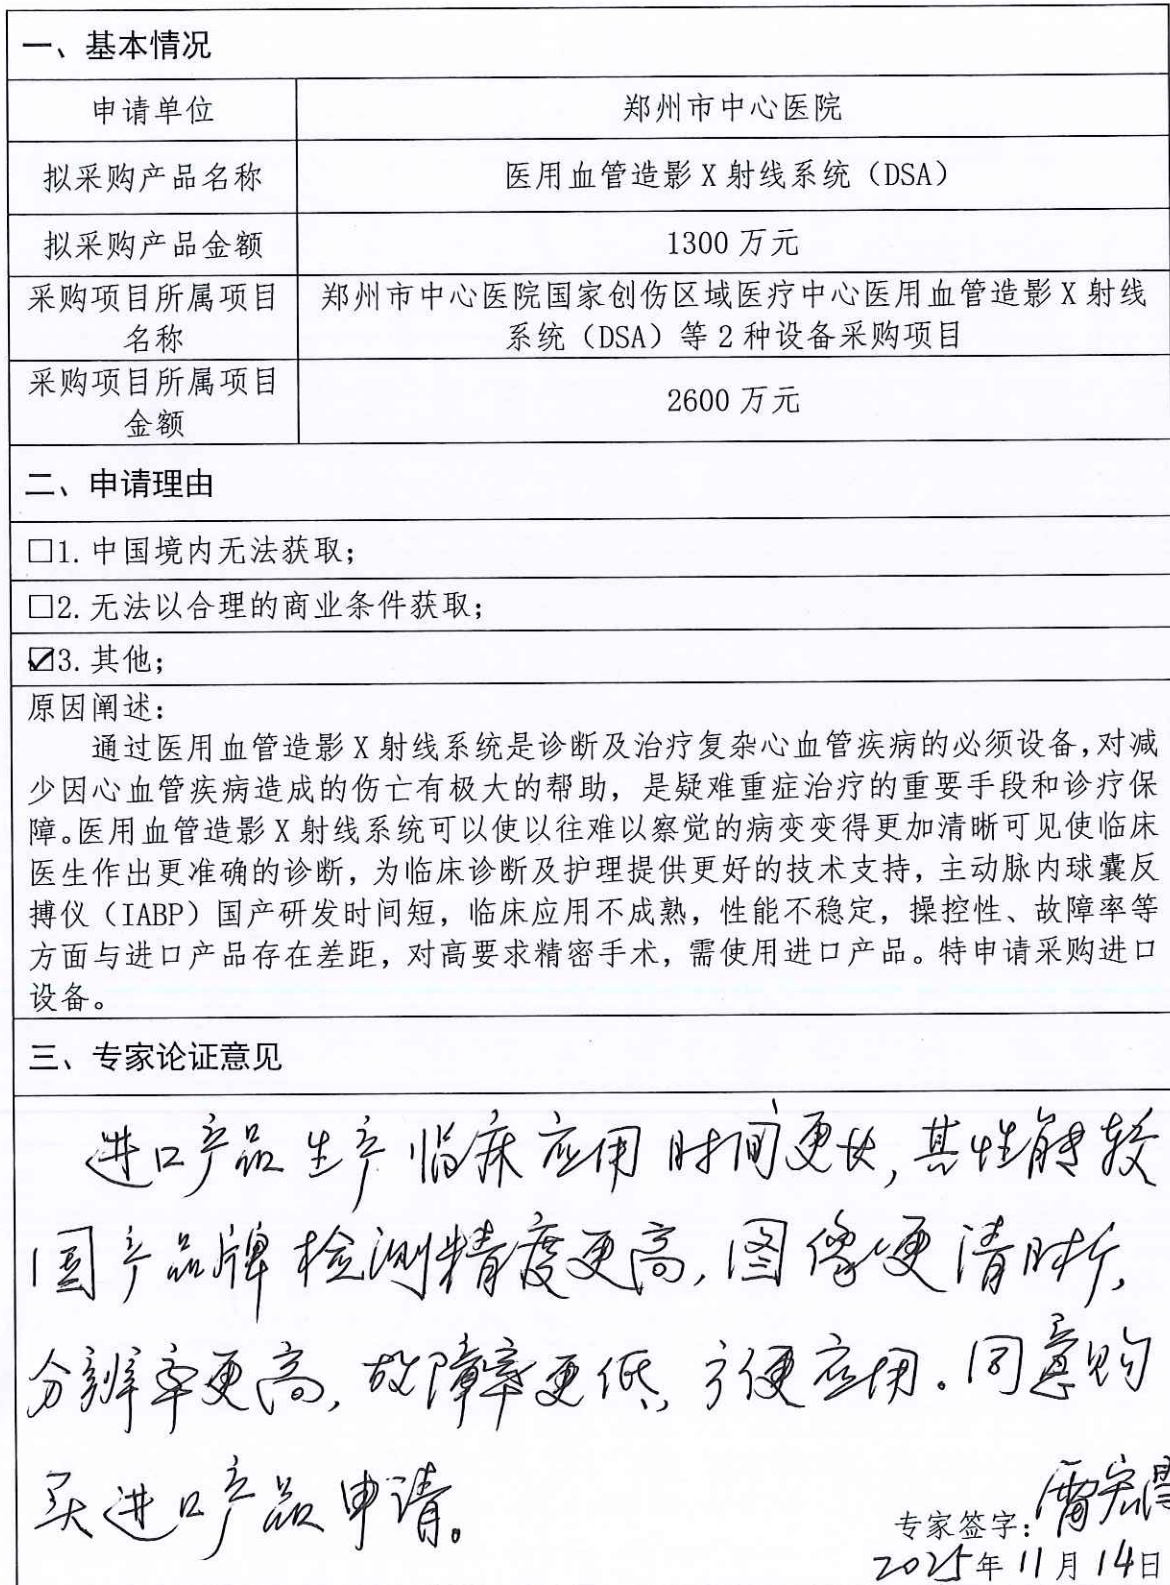 一、基本情况
申请单位
郑州市中心医院
拟采购产品名称
医用血管造影X射线系统（DSA）
拟采购产品金额
1300万元
采购项目所属项目
名称
郑州市中心医院国家创伤区域医疗中心医用血管造影X射线
系统（DSA）等2种设备采购项目
采购项目所属项目
金额
2600万元
二、申请理由
□1.中国境内无法获取；
□2.无法以合理的商业条件获取；
☑3.其他；
原因阐述：
通过医用血管造影X射线系统是诊断及治疗复杂心血管疾病的必须设备，对减
少因心血管疾病造成的伤亡有极大的帮助，是疑难重症治疗的重要手段和诊疗保
障。医用血管造影X射线系统可以使以往难以察觉的病变变得更加清晰可见使临床
医生作出更准确的诊断，为临床诊断及护理提供更好的技术支持，主动脉内球囊反
搏仪（IABP）国产研发时间短，临床应用不成熟，性能不稳定，操控性、故障率等
方面与进口产品存在差距，对高要求精密手术，需使用进口产品。特申请采购进口
设备。
三、专家论证意见
进口产品生产临床应用时间更长，其性能较
国产品牌检测精度更高，图像更清晰，
分辨率更高，故障率更低，方便应用。同意购
买进口产品申请。
专家签字：
2025年11月14日